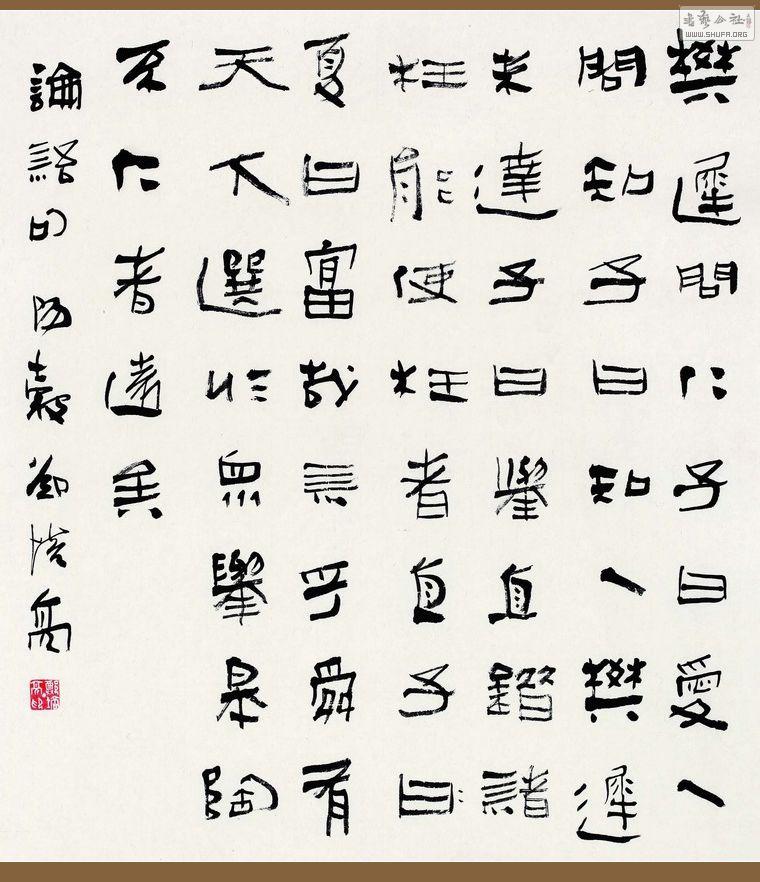 樊遲問仁子曰愛人
問知子曰知人樊遲
未達子曰舉直錯諸
枉能使枉者直子曰
夏曰富哉言乎舜有
天下選於眾舉皋陶
不仁者遠矣
論語句 陽穀鄭培亮
鄭培亮印
书艺公社
WWW.SHUFA.ORG